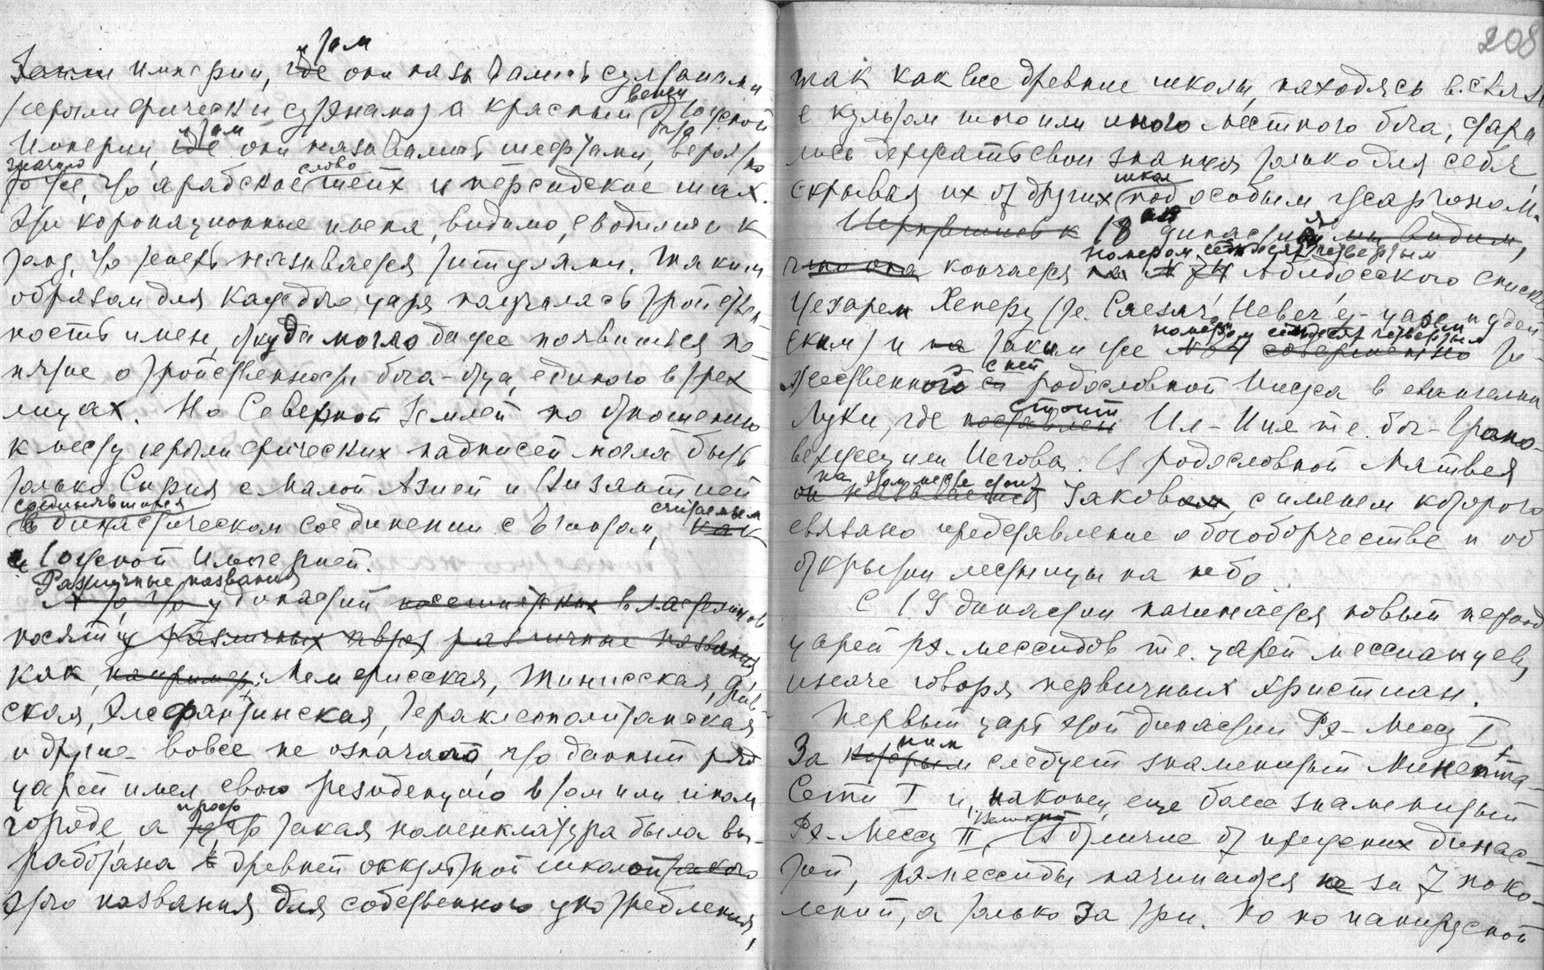 и там
империи, где они назывались султанами
иероглифически сутэнами, а красный венец Южной
Империи, где там они назывались шефтами, вероятно
значило то же, что арабское слово шейх и персидское шах.
Эти коронационные имена, видимо, сводились к
тому, что теперь называется титулами. Таким
образом для каждого царя получилась тройствен-
ность имен, откуда могло даже появиться по-
нятие о тройственности бога-отца, единого в трех
лицах. Но Северной Землей по отношению
к месту иероглифических надписей могла быть
только Сирия с Малой Азией и Византией
соединявшаяся
в династическом соединении с Египтом, считаемым как
и Южной Империей.
Различные названия
То, что у династий
носят у различных авторов различные названия
как например: Мемфисская, Тинисская, Фив-
ская, Элефантинская, Гераклеополитанская
и другие вовсе не означало, что данный ряд
царей имел свою резиденцию в том или ином
городе, а просто то, что такая номенклатура была вы-
работана в древней оккультной школой такого
этого названия для собственного употребления,
208
так как все древние школы, находясь в связи
с культом того или иного местного бога, стара-
лись держать свои знания только для себя,
скрывая их от других школ под особым жаргоном.
18 династия мы видим,
номером семьдесят четвертым
что она кончается на № 74 Абидосского списка
Цезарем Хеперу (т.е. Caesar Hever'ем - царем иудей
номером семьдесят четвертым
ским) и на таким же № 74 совершенно то-
с ней
жественного с родословной Иисуса в евангелии
Луки, где поставлен стоит Ил-Ия т.е. бог-Громо-
вержец или Иегова. В родословной Матвея
на этом месте стоит
он называется Иаковом, с именем которого
связано представление о богоборчестве и об
открытии лестницы на небо.
С 19 династии начинается новый период
царей Рэ-мессидов т.е. царей мессианцев,
иначе говоря первичных христиан.
Первый царь этой династии Рэ-Месу I.
За которым ним следует знаменитый Минепта-
Сети I и, наконец, еще более знаменитый
Рэ-Месу II Великий. В отличие от прежних динас-
тий, рамессиды начинаются не за 7 поко-
лений, а только за три. Но по папирусной